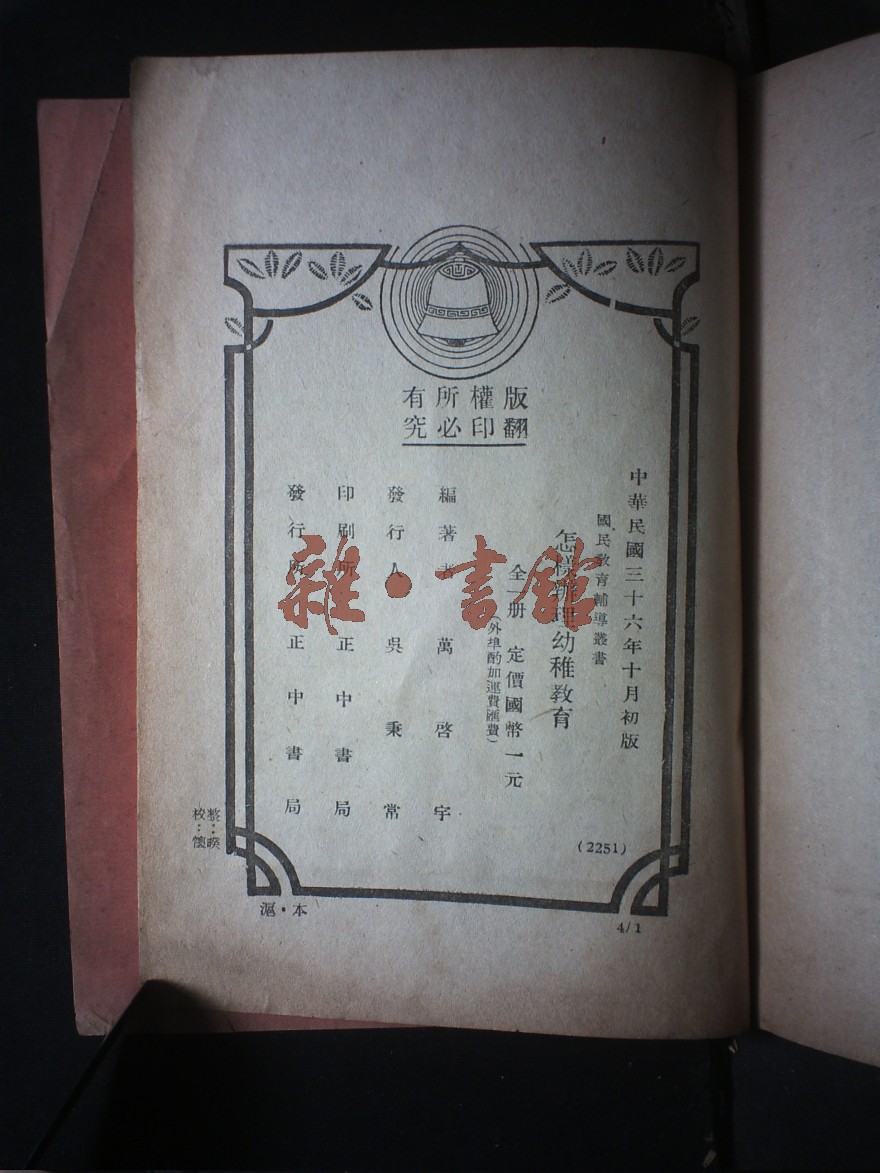 版權所有
翻印必究
中華民國三十六年十月初版
國民教育輔導叢書
怎樣辦理幼稚教育
全一册 定價國幣一元
(外埠酌加運費匯費)
編著者 萬啓宇
發行人 吳秉常
印刷所 正中書局
發行所 正中書局
(2251)
校：懷
滬·本
4/1
雜·書館